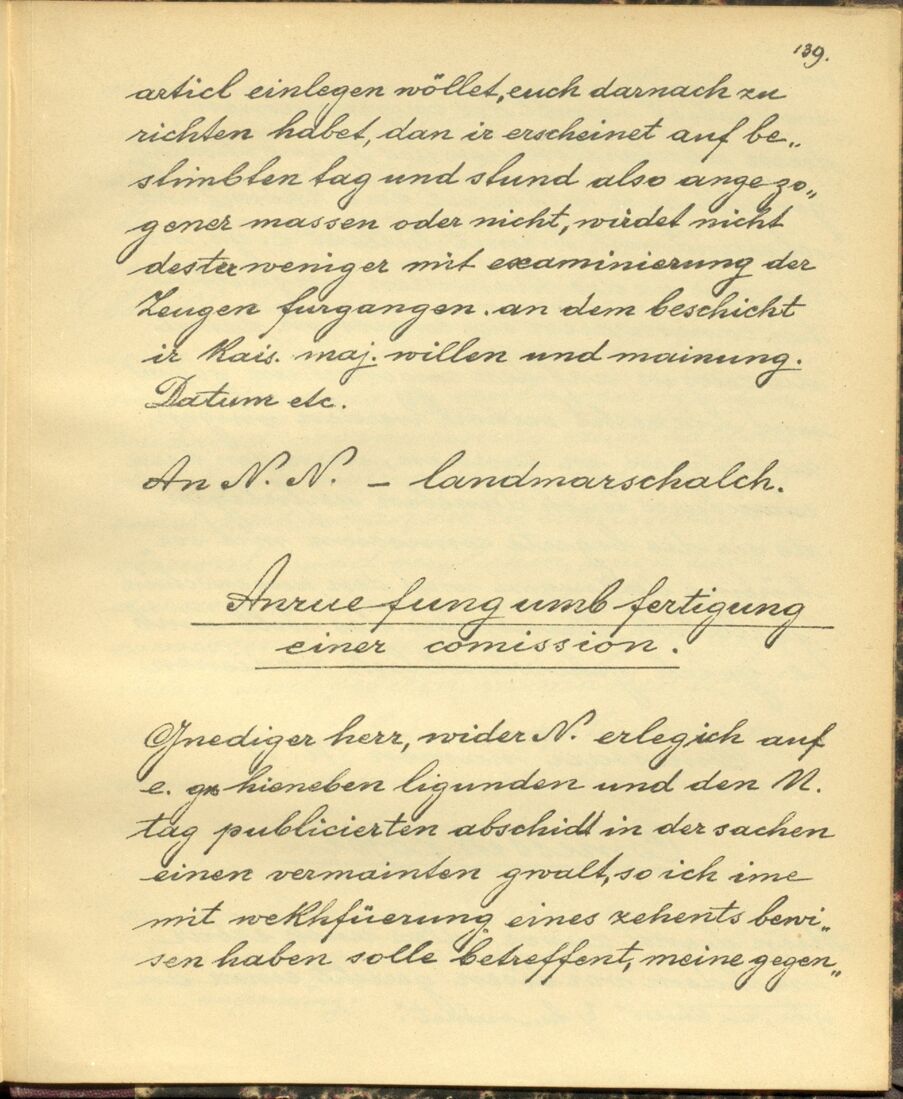 139.
articl einlegen wöllet, euch darnach zu
richten habet, dan ir erscheinet auf be„
stimbten tag und stund also angezo„
gener massen oder nicht, wirdet nicht
dester weniger mit examinierung der
Zeugen furgangen. an dem beschicht
ir Kais. maj. willen und mainung.
Datum etc.
An N. N. – landmarschalch.
Anruefung umb fertigung
einer comission.
Gnediger herr, wider N. erleg ich auf
e. gn hieneben ligunden und den N.
tag publicierten abschidt in der sachen
einen vermainten gwalt, so ich ime
mit wekhfüerung eines zehents bewi„
sen haben solle betreffent, meine gegen„